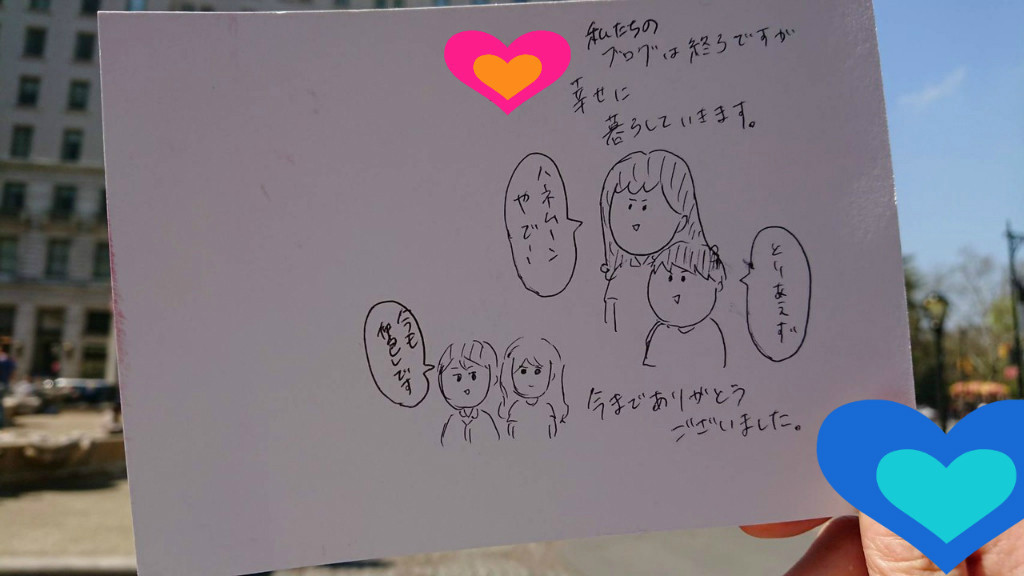 私たちの
ブログは終了ですが
幸せに
暮らしていきます。
ハネムーン
やでー!
とりあえず
今も
です
今までありがとう
ございました。